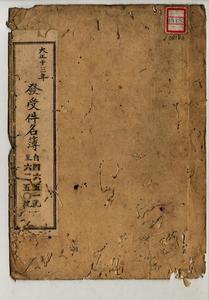 大正十三年
發受件名簿
自四六五一號
至六一五〇號